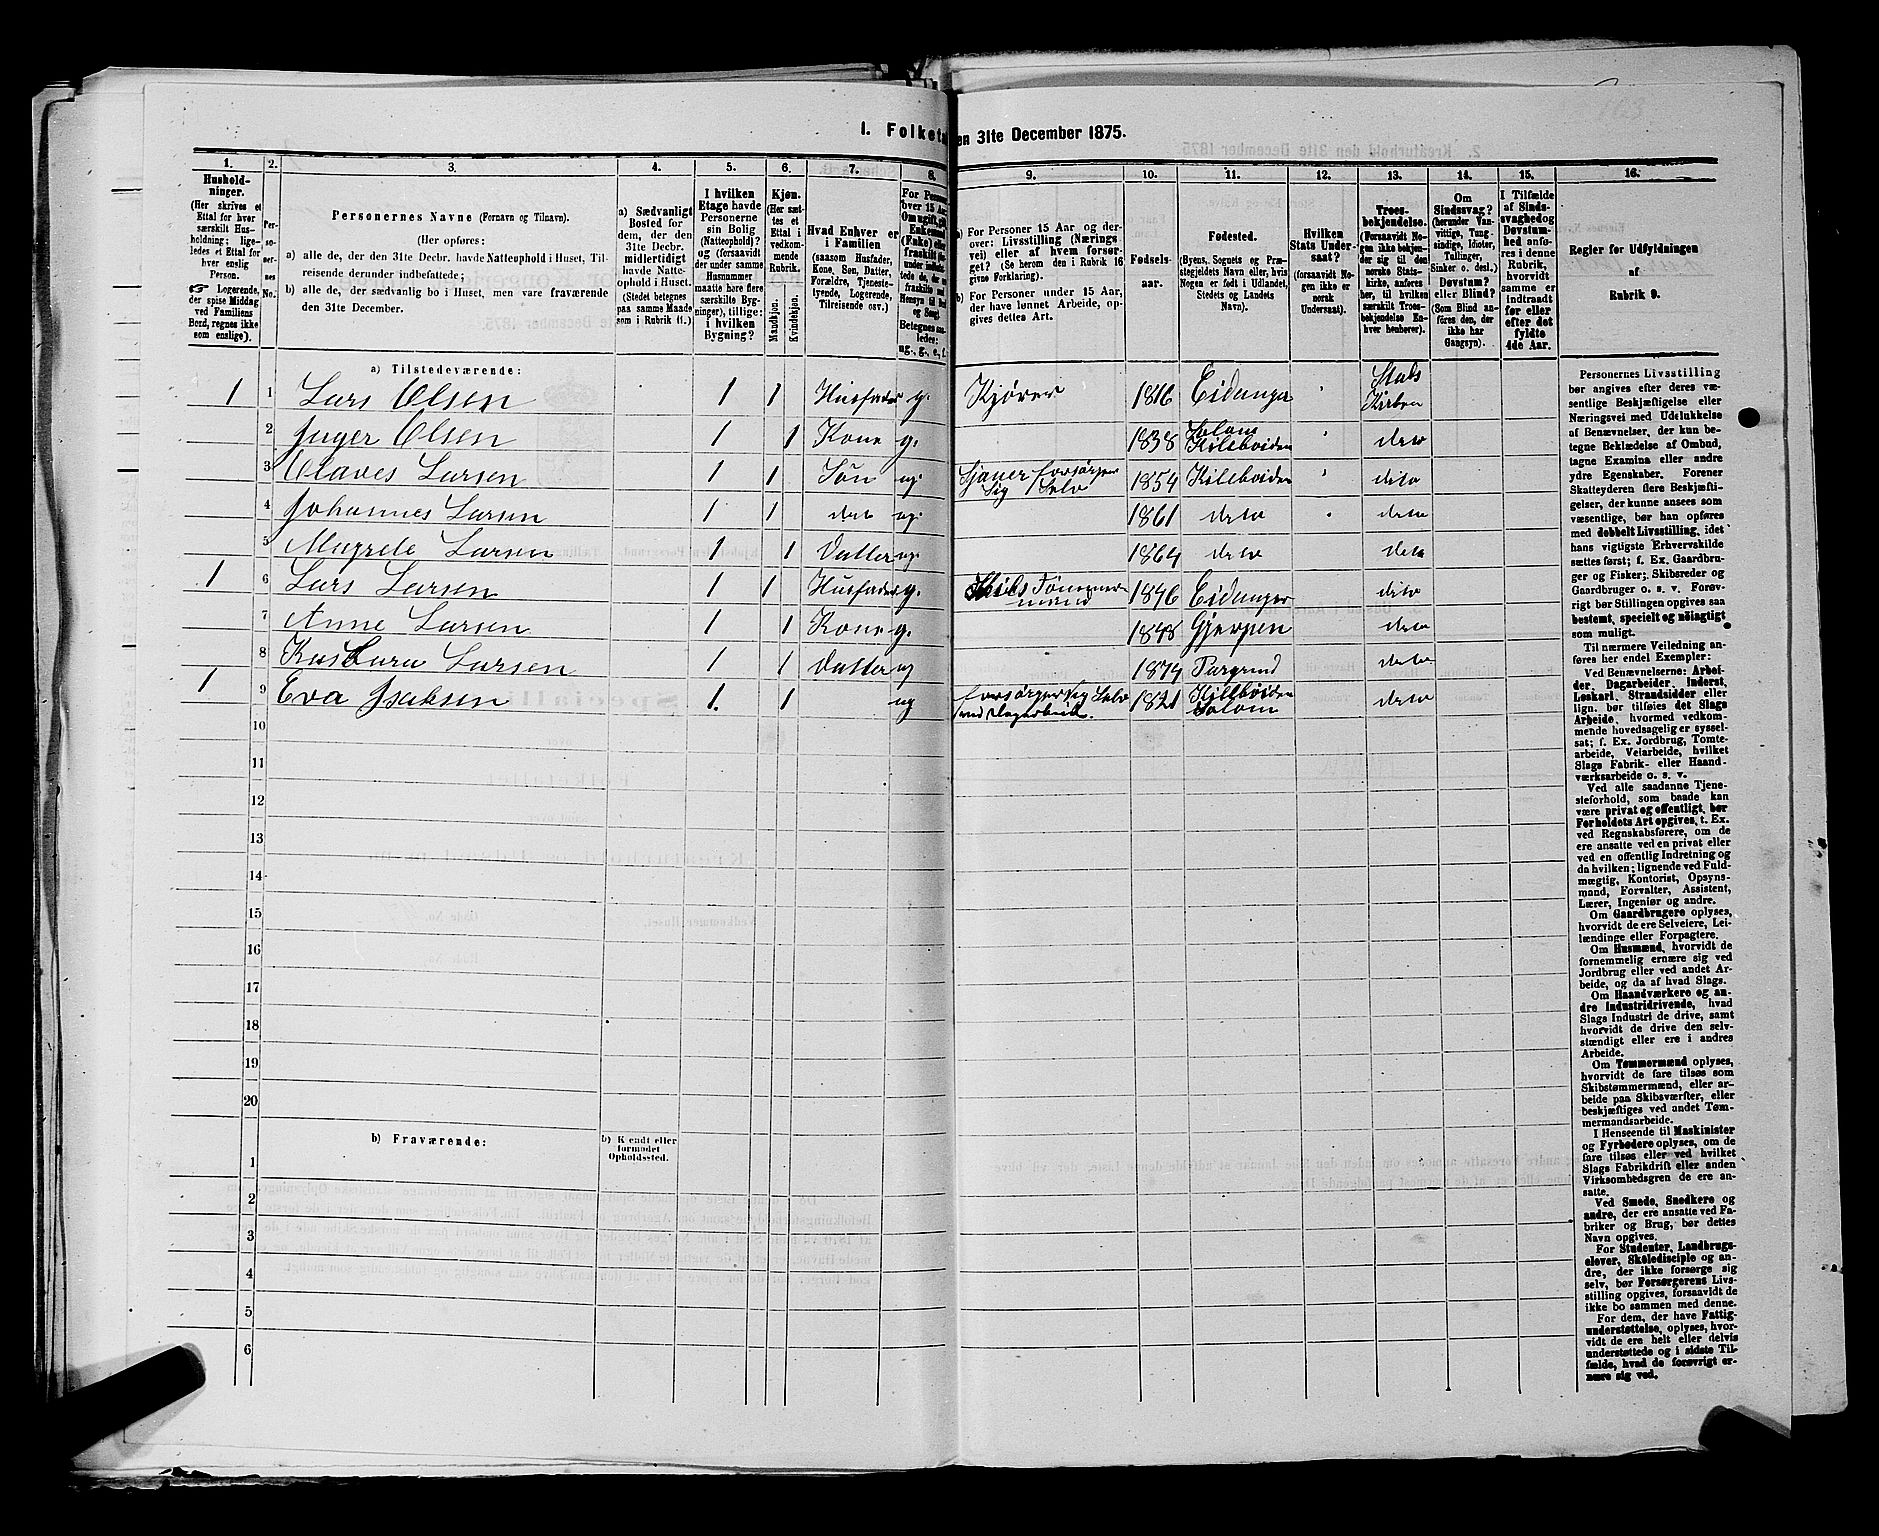 163
I. Folketal den 31te December 1875.
1. 2. 3. 4. 5. 6. 7. 8. 9. 10. 11. 12. 13. 14. 15. 16.
Husholdninger.
(Her skrives et
Ettal for hver
særskilt Husholdning;
ligeledes et Ettal for
hver enslig
Person.
Logerende,
der spise Middag
ved Familiens
Bord, regnes ikke
som enslige).
Personernes No.
Personernes Navne (Fornavn og Tilnavn).
(Her opføres:
a) alle de, der den 31te Decbr. havde Natteophold i Huset, Tilreisende derunder indbefattede;
b) alle de, der sædvanlig bo i Huset, men vare fraværende
den 31te December.
a) Sædvanligt
Bosted for
dem, der den
31te Decbr.
midlertidigt
havde Natteophold i Huset.
(Stedet betegnes
paa samme Maade
som i Rubrik 11.)
I hvilken
Etage havde
Personerne
sin Bolig
(Natteophold)?
og (forsaavidt
der under samme
Husnummer
maatte høre flere
særskilte Bygninger), tillige:
i hvilken
Bygning?
Kjøn.
(Her sættes et
Ettal i
vedkommende
Rubrik.
Mandkjøn.
Kvindekjøn.
Hvad Enhver er
i Familien
(saasom Husfader,
Kone, Søn, Datter,
Forældre, Tjenestetyende, Logerende,
Tilreisende osv.)
For Personer
over 15 Aar:
Om ugift, gift,
Enkemand
(Enke) eller
fraskilt
Betegnes saaledes:
ug., g., e., f.
a) For Personer 15 Aar og derover: Livsstilling (Næringsvei) eller af hvem forsørget? (Se herom den i Rubrik 16
givne Forklaring).
b) For Personer under 15 Aar,
der have lønnet Arbeide, opgives dettes Art.
Fødselsaar.
Fødested.
(Byens, Sognets og Præstegjeldets Navn eller, hvis
Nogen er født i Udlandet,
Stedets og Landets
Navn).
Hvilken
Stats Undersaat?
(forsaavidt Nogen ikke er
norsk
Undersaat).
Troesbekjendelse.
(Forsaavidt Nogen ikke bekjender sig til den
norske Statskirke, anføres
her, til hvilken
særskilt Troesbekjendelse Enhver henhører).
Om
Sindssvag?
(herunder Vanvittige, Tungsindige, Idioter,
Tullinger,
Sinker o. desl.)
Døvstum?
eller Blind?
(Som Blind anføres den, der
ikke har
Gangsyn).
I Tilfælde
af Sindssvaghed og
Døvstumhed anføres i denne
Rubrik,
hvorvidt
samme er
indtraadt
før eller
efter det
fyldte
4de Aar.
Regler for Udfyldningen
af
Rubrik 9.
a) Tilstedeværende:
1 1 Lars Olsen 1 1 Husfader g. Kjører 1816 Eidanger Stats Kirken
2 Inger Olsen 1 1 Kone g. 1838 Solum Kilebviden deto
3 Olaves Larsen 1 1 Søn ug. Sjauer forsørger Sig Selv 1854 Kilebviden deto
4 Johannes Larsen 1 1 det ug. 1861 deto deto
5 Magrete Larsen 1 1 Datter ug. 1864 deto deto
1 6 Lars Larsen 1 1 Husfader g. Skibs Tømmermand 1846 Eidanger deto
7 Anne Larsen 1 1 Kone g. 1848 Gjerpen deto
8 Larsen 1 1 Datter ug 1874 Porsgrund deto
1 9 Eva Isaksen 1. 1 ug forsørger sig Selv ved Dagarbeide. 1821 Kilebviden Solum deto
10
11
12
13
14
15
16
17
18
19
20
b) Fraværende:
b) Kjendt eller
formodet
Opholdssted.
1
2
3
4
5
6
Personernes Livsstilling
bør angives efter deres væsentlige Beskjæftigelse eller
Næringsvei med Udelukkelse
af Benævnelser, der kun betegne Beklædelse af Ombud,
tagne Examina eller andre
ydre Egenskaber. Forener
Skatteyderen flere Beskjæftigelser, der kunne ansees som
væsentlige, bør han opføres
med dobbelt Livsstilling, idet
hans vigtigste Erhvervskilde
sættes først; f. Ex. Gaardbruger og Fisker; Skibsreder og
Gaardbruger o. s. v. Forøvrigt bør Stillingen opgives saa
bestemt, specielt og nøiagtigt
som muligt.
Til nærmere Veiledning anføres her endel Exempler:
Ved Benævnelserne: Arbeider, Dagarbeider, Inderst,
Løskarl, Strandsidder eller
lign. bør tilføies det Slags
Arbeide, hvormed vedkommende hovedsagelig er sysselsat; f. Ex. Jordbrug, Tomtearbeide, Veiarbeide, hvilket
Slags Fabrik- eller Haandværksarbeide o. s. v.
Ved alle saadanne Tjenesteforhold, som baade kan
være privat og offentligt, bør
Forholdets Art opgives, t. Ex.
ved Regnskabsførere, om de
ere ansatte ved en privat eller
ved en offentlig Indretning og
da hvilken; lignende ved Fuldmægtig, Kontorist, Opsynsmand, Forvalter, Assistent,
Lærer, Ingeniør og andre.
Om Gaardbrugere oplyses,
hvorvidt de ere Selveiere, Leilændinge eller Forpagtere.
Om Husmænd, hvorvidt de
fornemmelig ernære sig ved
Jordbrug eller ved andet Arbeide, og da af hvad Slags.
Om Haandværkere og andre Industridrivende, hvad
Slags Industri de drive, samt
hvorvidt de drive den selvstændigt eller ere i andres
Arbeide.
Om Tømmermænd oplyses,
hvorvidt de fare tilsøs som
Skibstømmermænd, eller arbeide paa Skibsværfter, eller
beskjæftiges ved andet Tømmermandsarbeide.
I Henseende til Maskinister
og Fyrbødere oplyses, om de
fare tilsøs eller ved hvilket
Slags Fabrikdrift eller anden
Virksomhedsgren de ere ansatte.
Ved Smede, Snedkere og
andre, der ere ansatte ved Fabriker og Brug, bør dettes
Navn opgives.
For Studenter, Landbrugselever, Skoledisciple og andre, der ikke forsørge sig
selv, bør Forsørgerens Livsstilling opgives, forsaavidt de
ikke bo sammen med denne.
For dem, der have Fattigunderstøttelse, oplyses, hvorvidt de ere helt eller delvis
understøttede og i sidste Tilfælde, hvad de forøvrigt ernære sig ved.